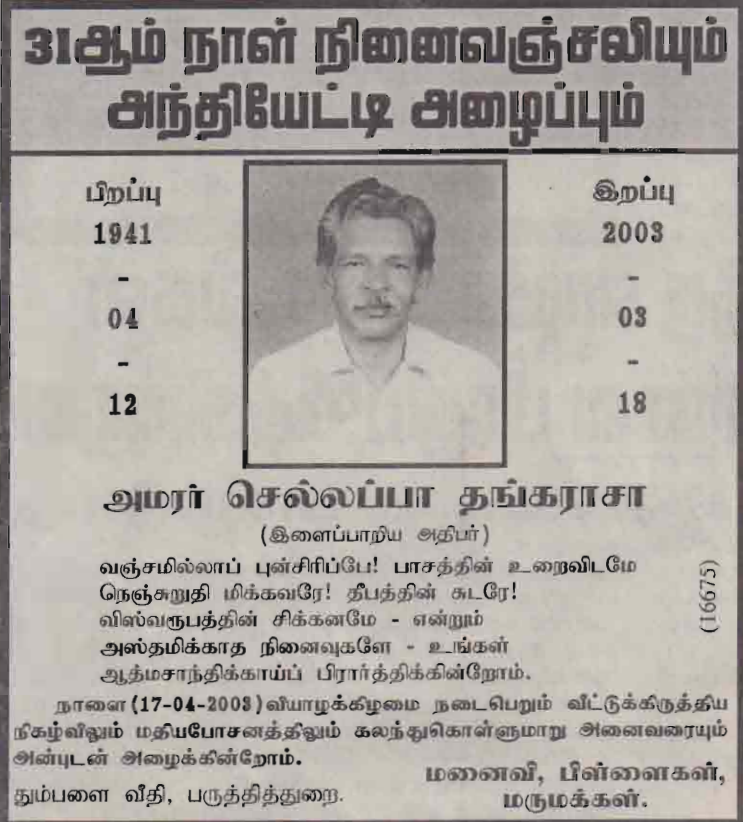 31ஆம் நாள் நினைவஞ்சலியும்
அந்தியேட்டி அழைப்பும்
பிறப்பு
1941
-
04
-
12
இறப்பு
2003
-
03
-
18
அமரர் செல்லப்பா தங்கராசா
(இளைப்பாறிய அதிபர்)
வஞ்சமில்லாப் புன்சிரிப்பே! பாசத்தின் உறைவிடமே
நெஞ்சுறுதி மிக்கவரே! தீபத்தின் சுடரே!
விஸ்வரூபத்தின் சிக்கனமே - என்றும்
அஸ்தமிக்காத நினைவுகளே - உங்கள்
ஆத்மசாந்திக்காய்ப் பிரார்த்திக்கின்றோம்.
(16675)
நாளை (17-04-2003) வியாழக்கிழமை நடைபெறும் வீட்டுக்கிருத்திய
நிகழ்விலும் மதியபோசனத்திலும் கலந்துகொள்ளுமாறு அனைவரையும்
அன்புடன் அழைக்கின்றோம்.
மனைவி, பிள்ளைகள்,
மருமக்கள்.
தும்பளை வீதி, பருத்தித்துறை.